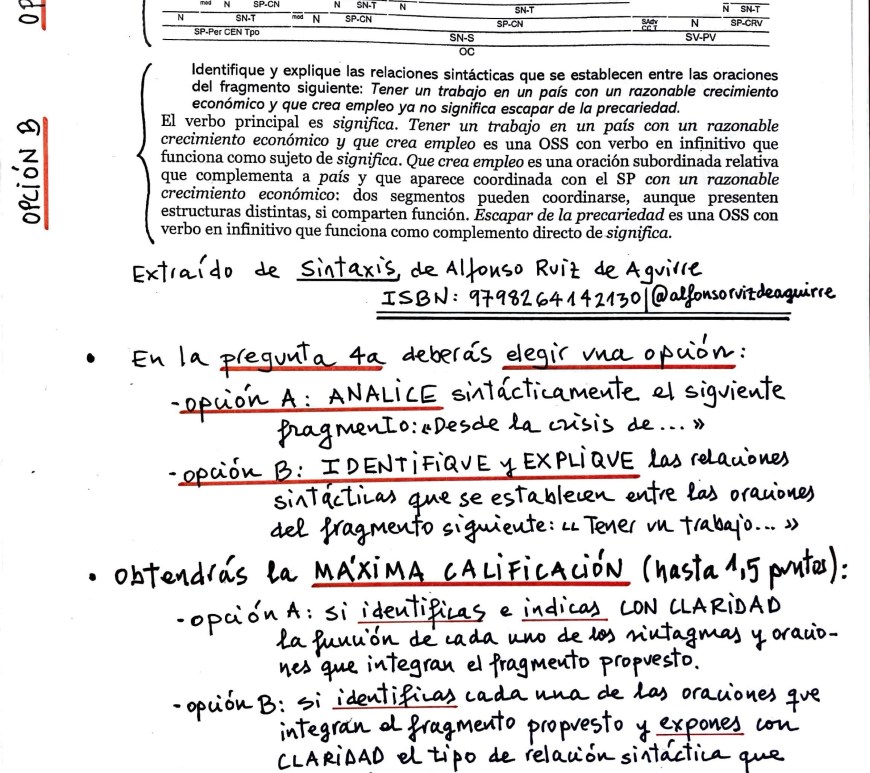 mod N SP-CN N SN-T N SN-T N SN-T
N SN-T mod N SP-CN SP-CN SAdv CC T N SP-CRV
SP-Per CEN Tpo SN-S SV-PV
OC
OPCIÓN B
Identifique y explique las relaciones sintácticas que se establecen entre las oraciones
del fragmento siguiente: Tener un trabajo en un país con un razonable crecimiento
económico y que crea empleo ya no significa escapar de la precariedad.
El verbo principal es significa. Tener un trabajo en un país con un razonable
crecimiento económico y que crea empleo es una OSS con verbo en infinitivo que
funciona como sujeto de significa. Que crea empleo es una oración subordinada relativa
que complementa a país y que aparece coordinada con el SP con un razonable
crecimiento económico: dos segmentos pueden coordinarse, aunque presenten
estructuras distintas, si comparten función. Escapar de la precariedad es una OSS con
verbo en infinitivo que funciona como complemento directo de significa.
Extraído de Sintaxis, de Alfonso Ruiz de Aguirre
ISBN: 9798264142130|@alfonsoruizdeaguirre
• En la pregunta 4a deberás elegir una opción:
- opción A: ANALICE sintácticamente el siguiente
fragmento: «Desde la crisis de... »
- opción B: IDENTIFIQUE y EXPLIQUE las relaciones
sintácticas que se establecen entre las oraciones
del fragmento siguiente: « Tener un trabajo... »
• Obtendrás la MÁXIMA CALIFICACIÓN (hasta 1,5 puntos):
- opción A: si identificas e indicas CON CLARIDAD
la función de cada uno de los sintagmas y oracio-
nes que integran el fragmento propuesto.
- opción B: si identificas cada una de las oraciones que
integran el fragmento propuesto y expones con
CLARIDAD el tipo de relación sintáctica que